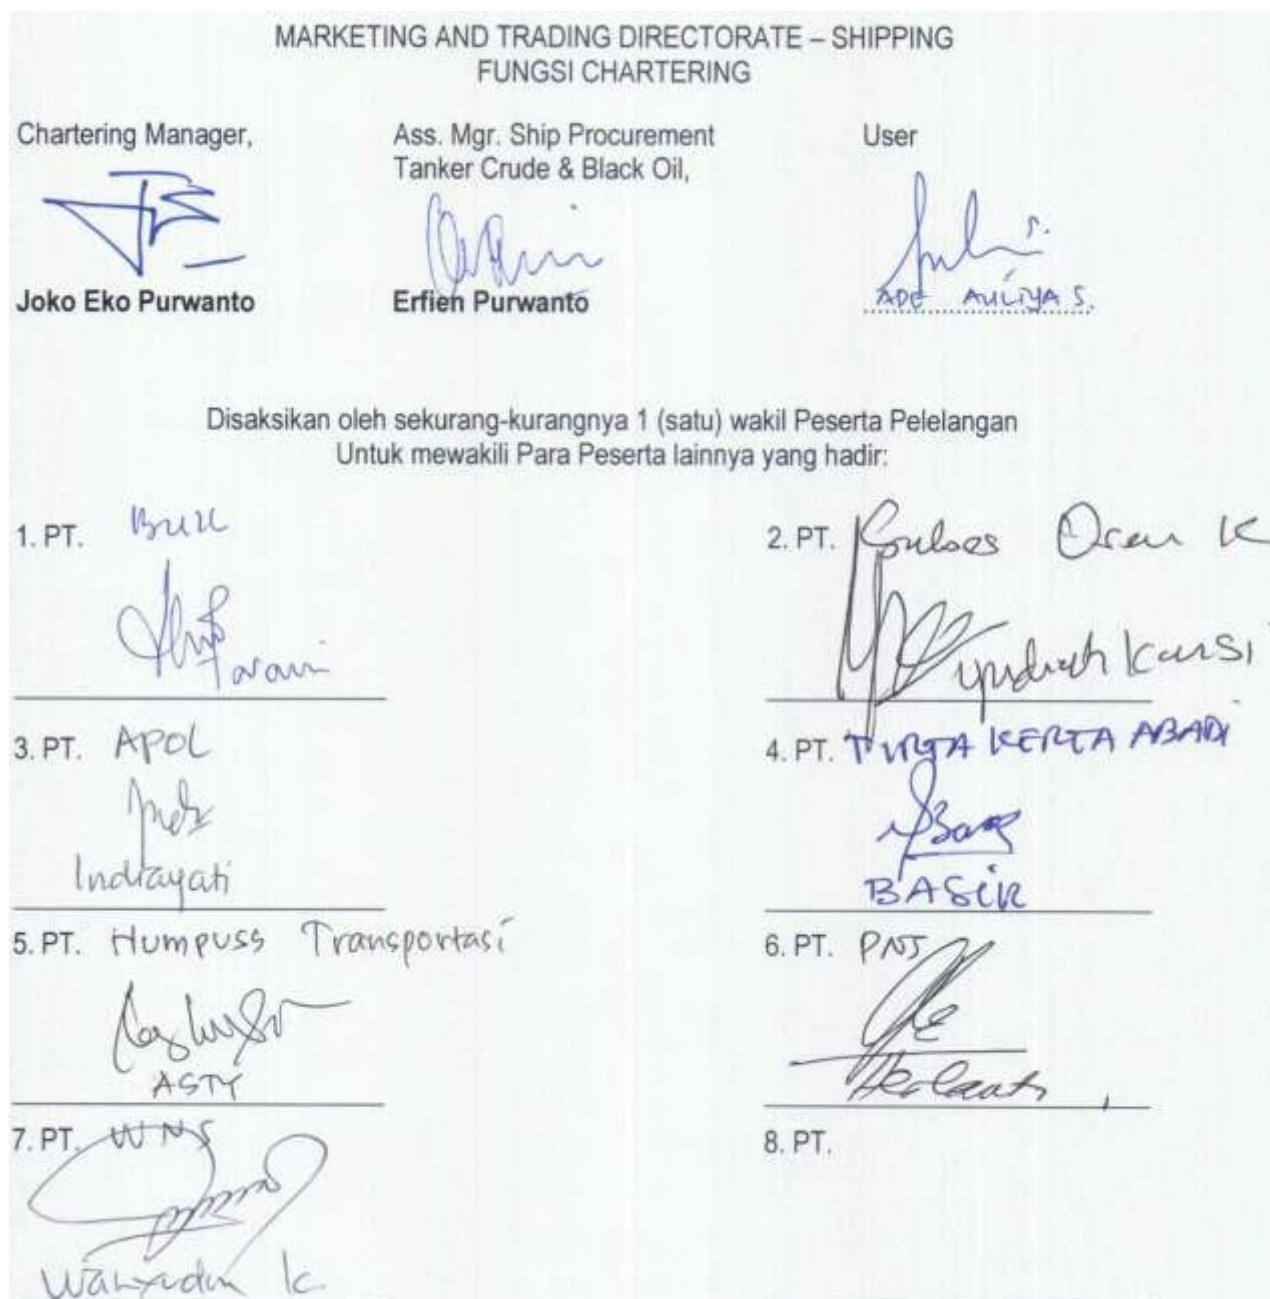 MARKETING AND TRADING DIRECTORATE – SHIPPING
FUNGSI CHARTERING
Chartering Manager,
Ass. Mgr. Ship Procurement
Tanker Crude & Black Oil,
User
Joko Eko Purwanto
Erfien Purwanto
ADE AULIYA S.
Disaksikan oleh sekurang-kurangnya 1 (satu) wakil Peserta Pelelangan
Untuk mewakili Para Peserta lainnya yang hadir:
1. PT.
2. PT.
3. PT. APOL
Indrayati
4. PT. TIRTA KERTA ABADI
BASIR
5. PT. Humpuss Transportasi
ASTY
6. PT. PNJ
7. PT. WNS
Wahyudin K.
8. PT.